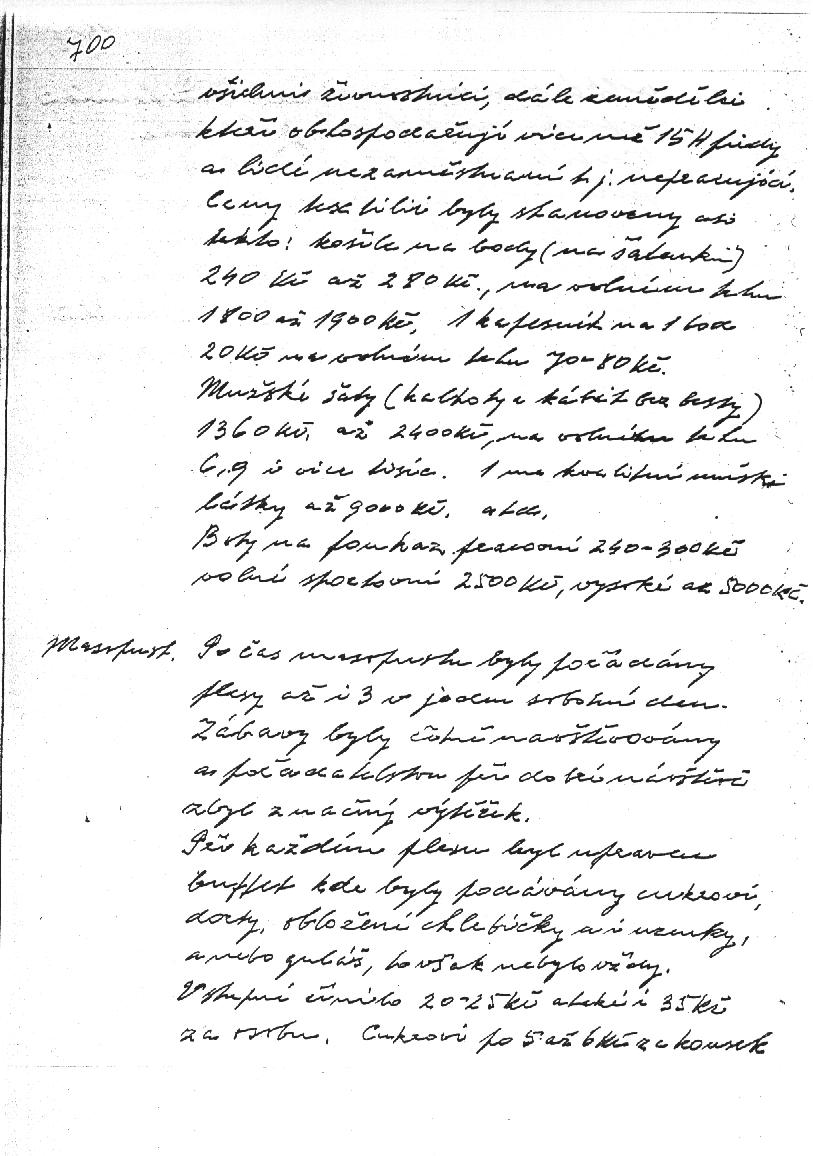 700
všichni živnostníci, dále zemědělci
kteří obhospodařují více než 15 H půdy
a lidé nezaměstnaní t.j. nepracující.
Ceny textilií byly stanoveny asi
takto: košile na body (na šatenku)
240 Kč až 280 Kč., na volném trhu
1800 až 1900 Kč, 1 kapesník na 1 bod
20 Kč na volném trhu 70-80 Kč.
Mužské šaty (kalhoty a kabát bez vesty)
1360 Kč. až 2400 Kč, na volném trhu
6, 9 i více tisíc. 1 m kvalitní mužské
látky až 9000 Kč. atd.
Boty na poukaz, pracovní 240-300 Kč
volné sportovní 2500 Kč, vysoké až 5000 Kč.
Masopust. Po čas masopustu byly pořádány
plesy až i 3 v jeden sobotní den.
Zábavy byly četně navštěvovány
a pořadatelstvu při dobré návštěvě
zbyl značný výtěžek.
Při každém plesu byl upraven
buffet kde byly podávány cukroví,
dorty, obložené chlebíčky a i uzenky,
anebo guláš, to však nebylo vždy.
Vstupné činilo 20-25 Kč a také i 35 Kč
za osobu. Cukroví po 5 až 6 Kč za kousek